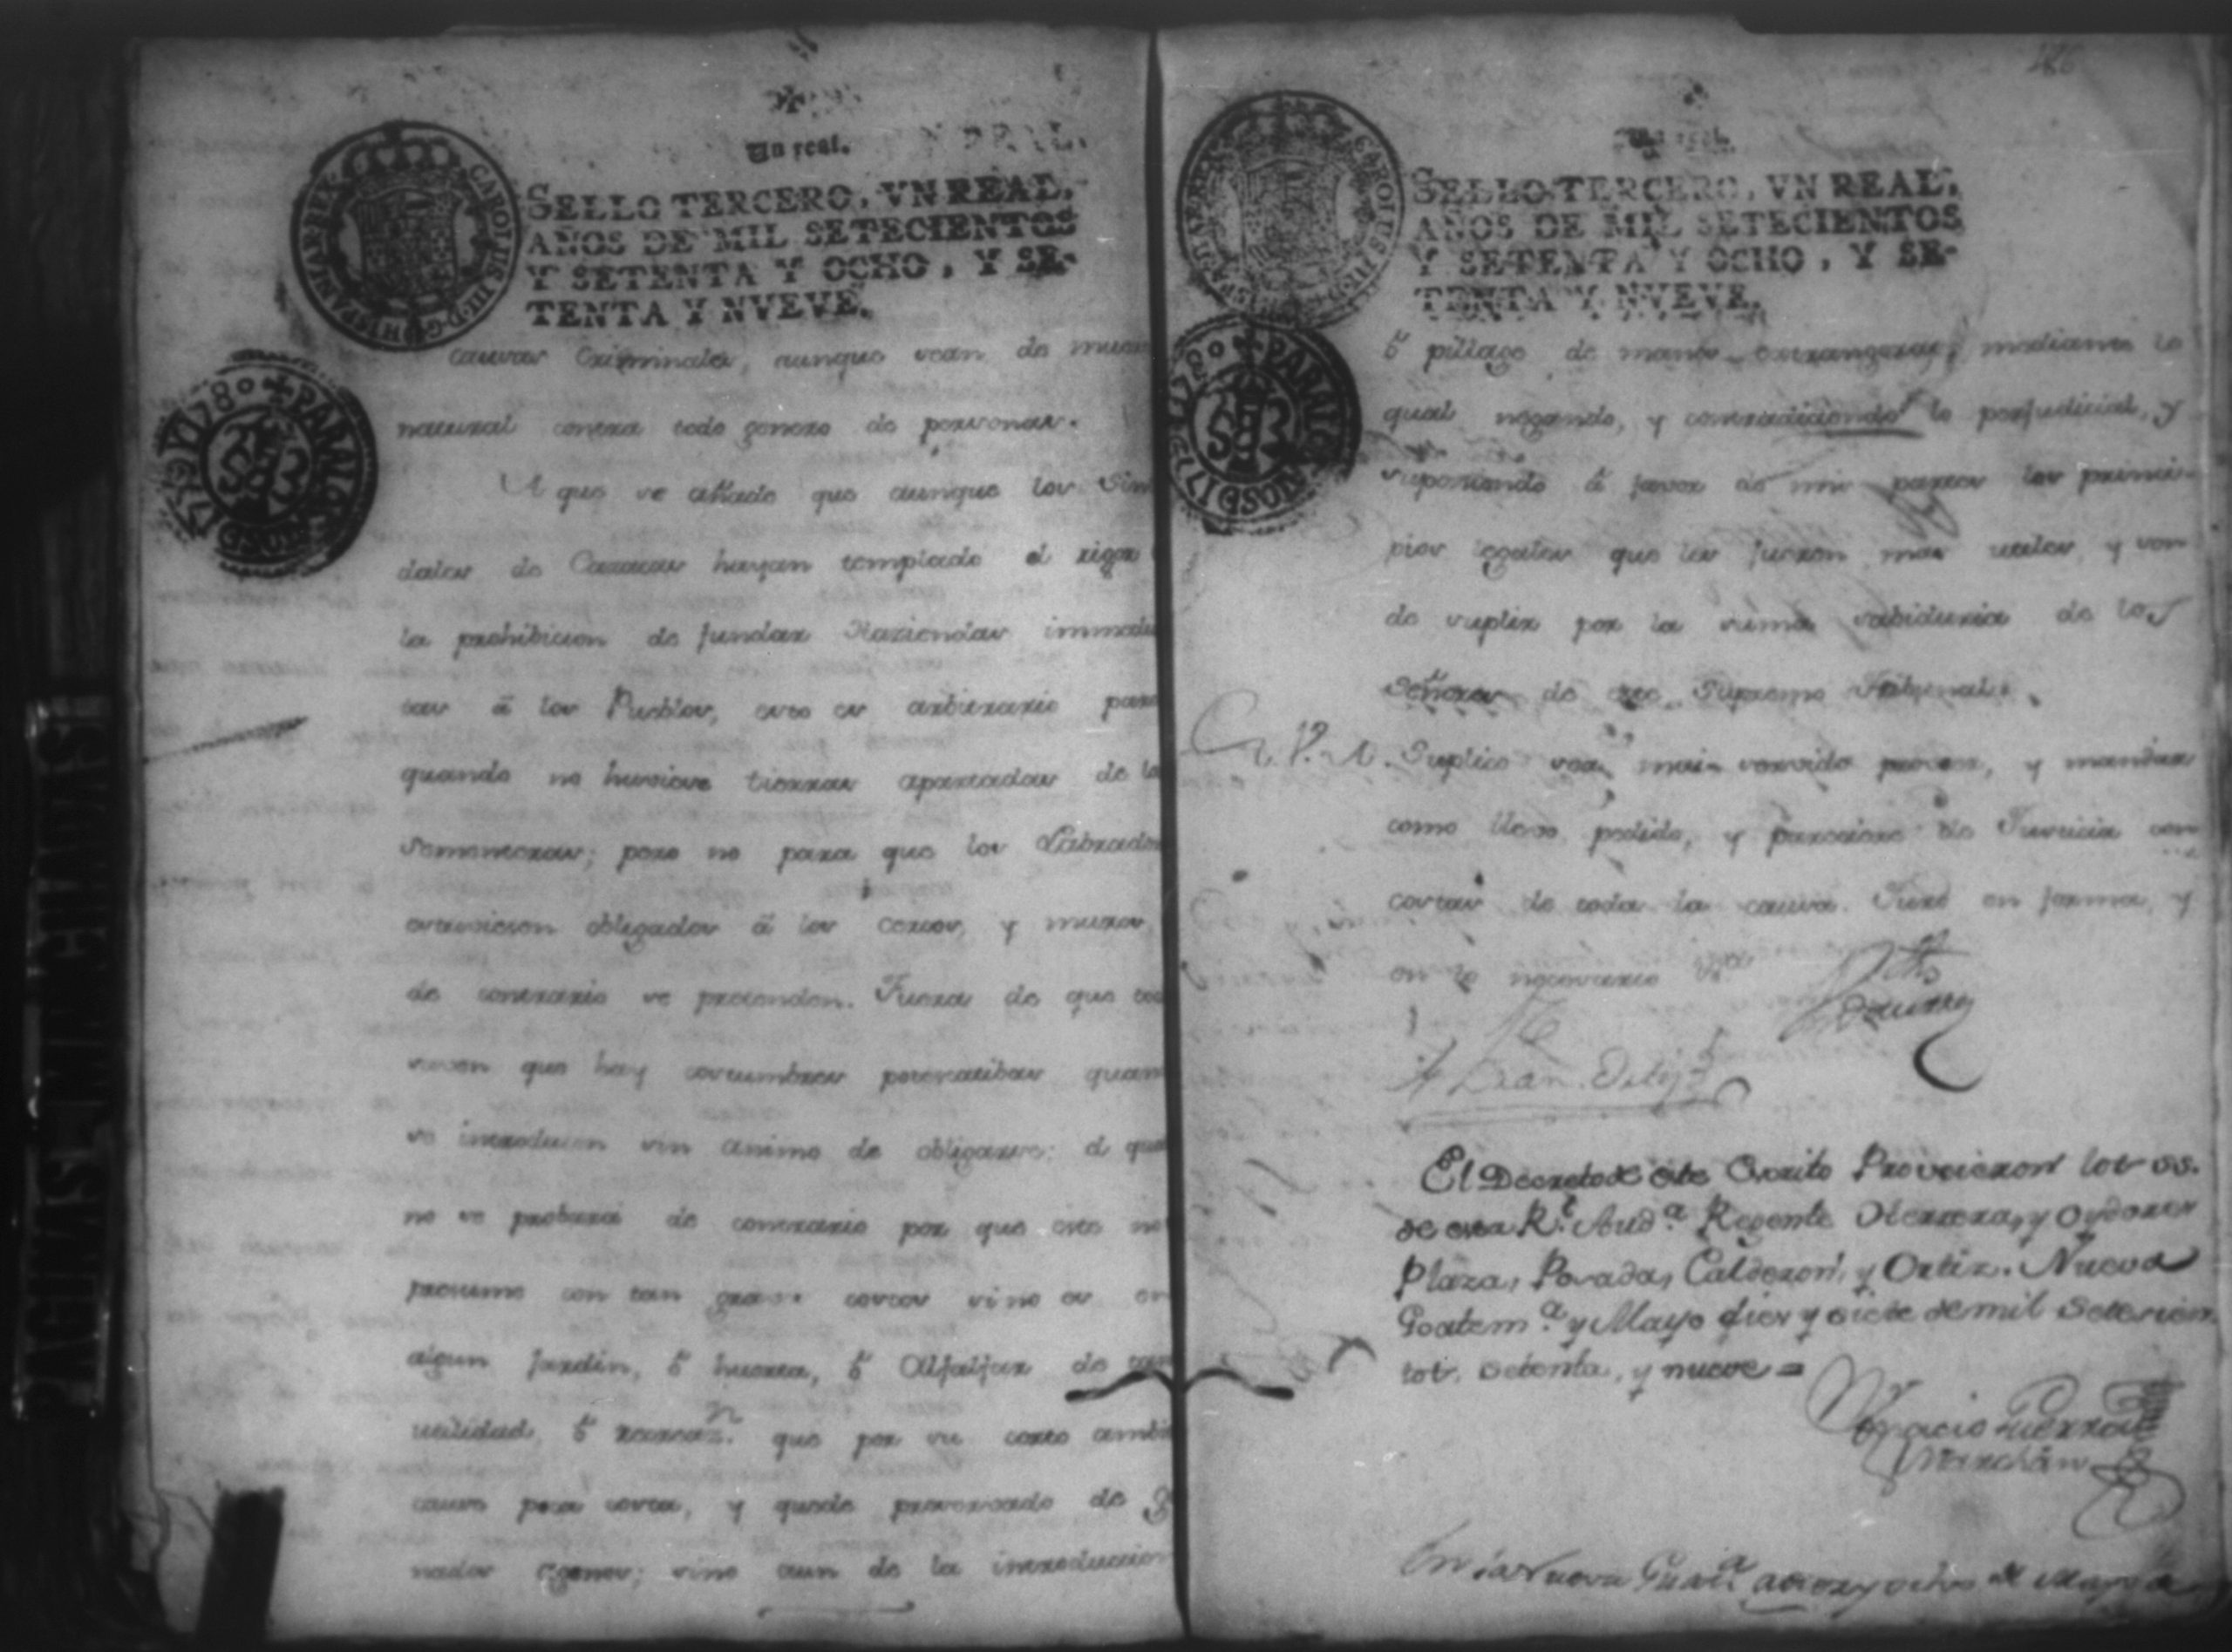 Un real.
SELLO TERCERO, VN REAL,
AÑOS DE MIL SETECIENTOS
Y SETENTA Y OCHO, Y SE-
TENTA Y NVEVE.
CAROLUS III D G HISPANIAR REX
PARA LOS AÑOS DE 1779 Y 1780
causas Criminales, aunque sean de
natural contra todo genero de personas.
A que se añade que aunque los
de Caracas hayan templado el rigor
la prohibicion de fundar Haziendas
á los Pueblos, esto es arbitrario para
quando no huviese tierras apartadas de
sementeras; pero no para que los
estuviesen obligados á los cercos, y muros,
de contrario se pretenden. Fuera de que
que hay costumbres potestatibas
se introducen sin animo de obligarse: el
no se probará de contrario por que este
presume con tan graves costos sino es
algun Jardin, ó huerta, ó Alfalfar de
utilidad, ó que por su corto
cause poca costa, y quede preservado de
nados agenos; sino aun de la introduccion
186
Un real.
SELLO TERCERO, VN REAL,
AÑOS DE MIL SETECIENTOS
Y SETENTA Y OCHO, Y SE-
TENTA Y NVEVE.
CAROLUS III D G HISPANIAR REX
PARA LOS AÑOS DE 1779 Y 1780
ó pillage de manos extrangeras, mediante lo
qual negando, y contradiciendo lo perjudicial, y
suponiendo á favor de mis partes los princi-
pios legales que les fueron mas utiles, y son
de suplir por la suma sabiduria de los
Señores de este Supremo Tribunal.
A V. A. Suplico sea mui servido proveer, y mandar
como llevo pedido, y pareciere de Justicia con
costas de toda la causa. Juro en forma, y
en lo necesario
El Decreto de este Escrito Proveieron los SS.
de esta Rl. Auda. Regente Herrera, y Oydores
Plaza, Posada, Calderon, y Ortiz. Nueva
Goatema. y Mayo diez y siete de mil Setecien
tos, setenta, y nueve =
Ignacio Guerra
Marchán
En la Nueva Guata. a diez y ocho de Mayo de